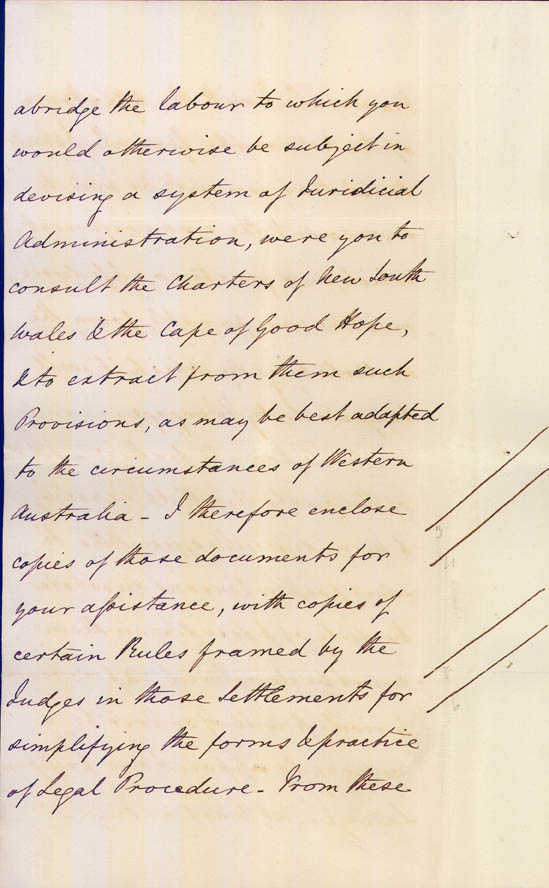 abridge the labour to which you
would otherwise be subject in
devising a system of Juridicial
Administration, were you to
consult the Charters of New South
Wales & the Cape of Good Hope,
& to extract from them such
Provisions, as may be best adapted
to the circumstances of Western
Australia - I therefore enclose
3
copies of those documents for
4
your assistance, with copies of
certain Rules framed by the
5
Judges in those Settlements for
6
simplifying the forms & practice
of Legal Procedure - From these